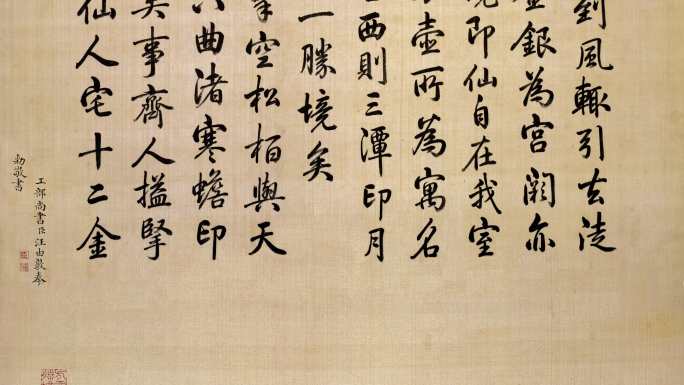 到風輒引去徒
金銀為宮闕亦
境即仙自在我室
壺所為寓名
西則三潭印月
一勝境矣
拏空松栢與天
六曲渚寒蟾印
美事齊人搤掔
仙人宅十二金
工部尚書臣汪由敦奉
勅敬書